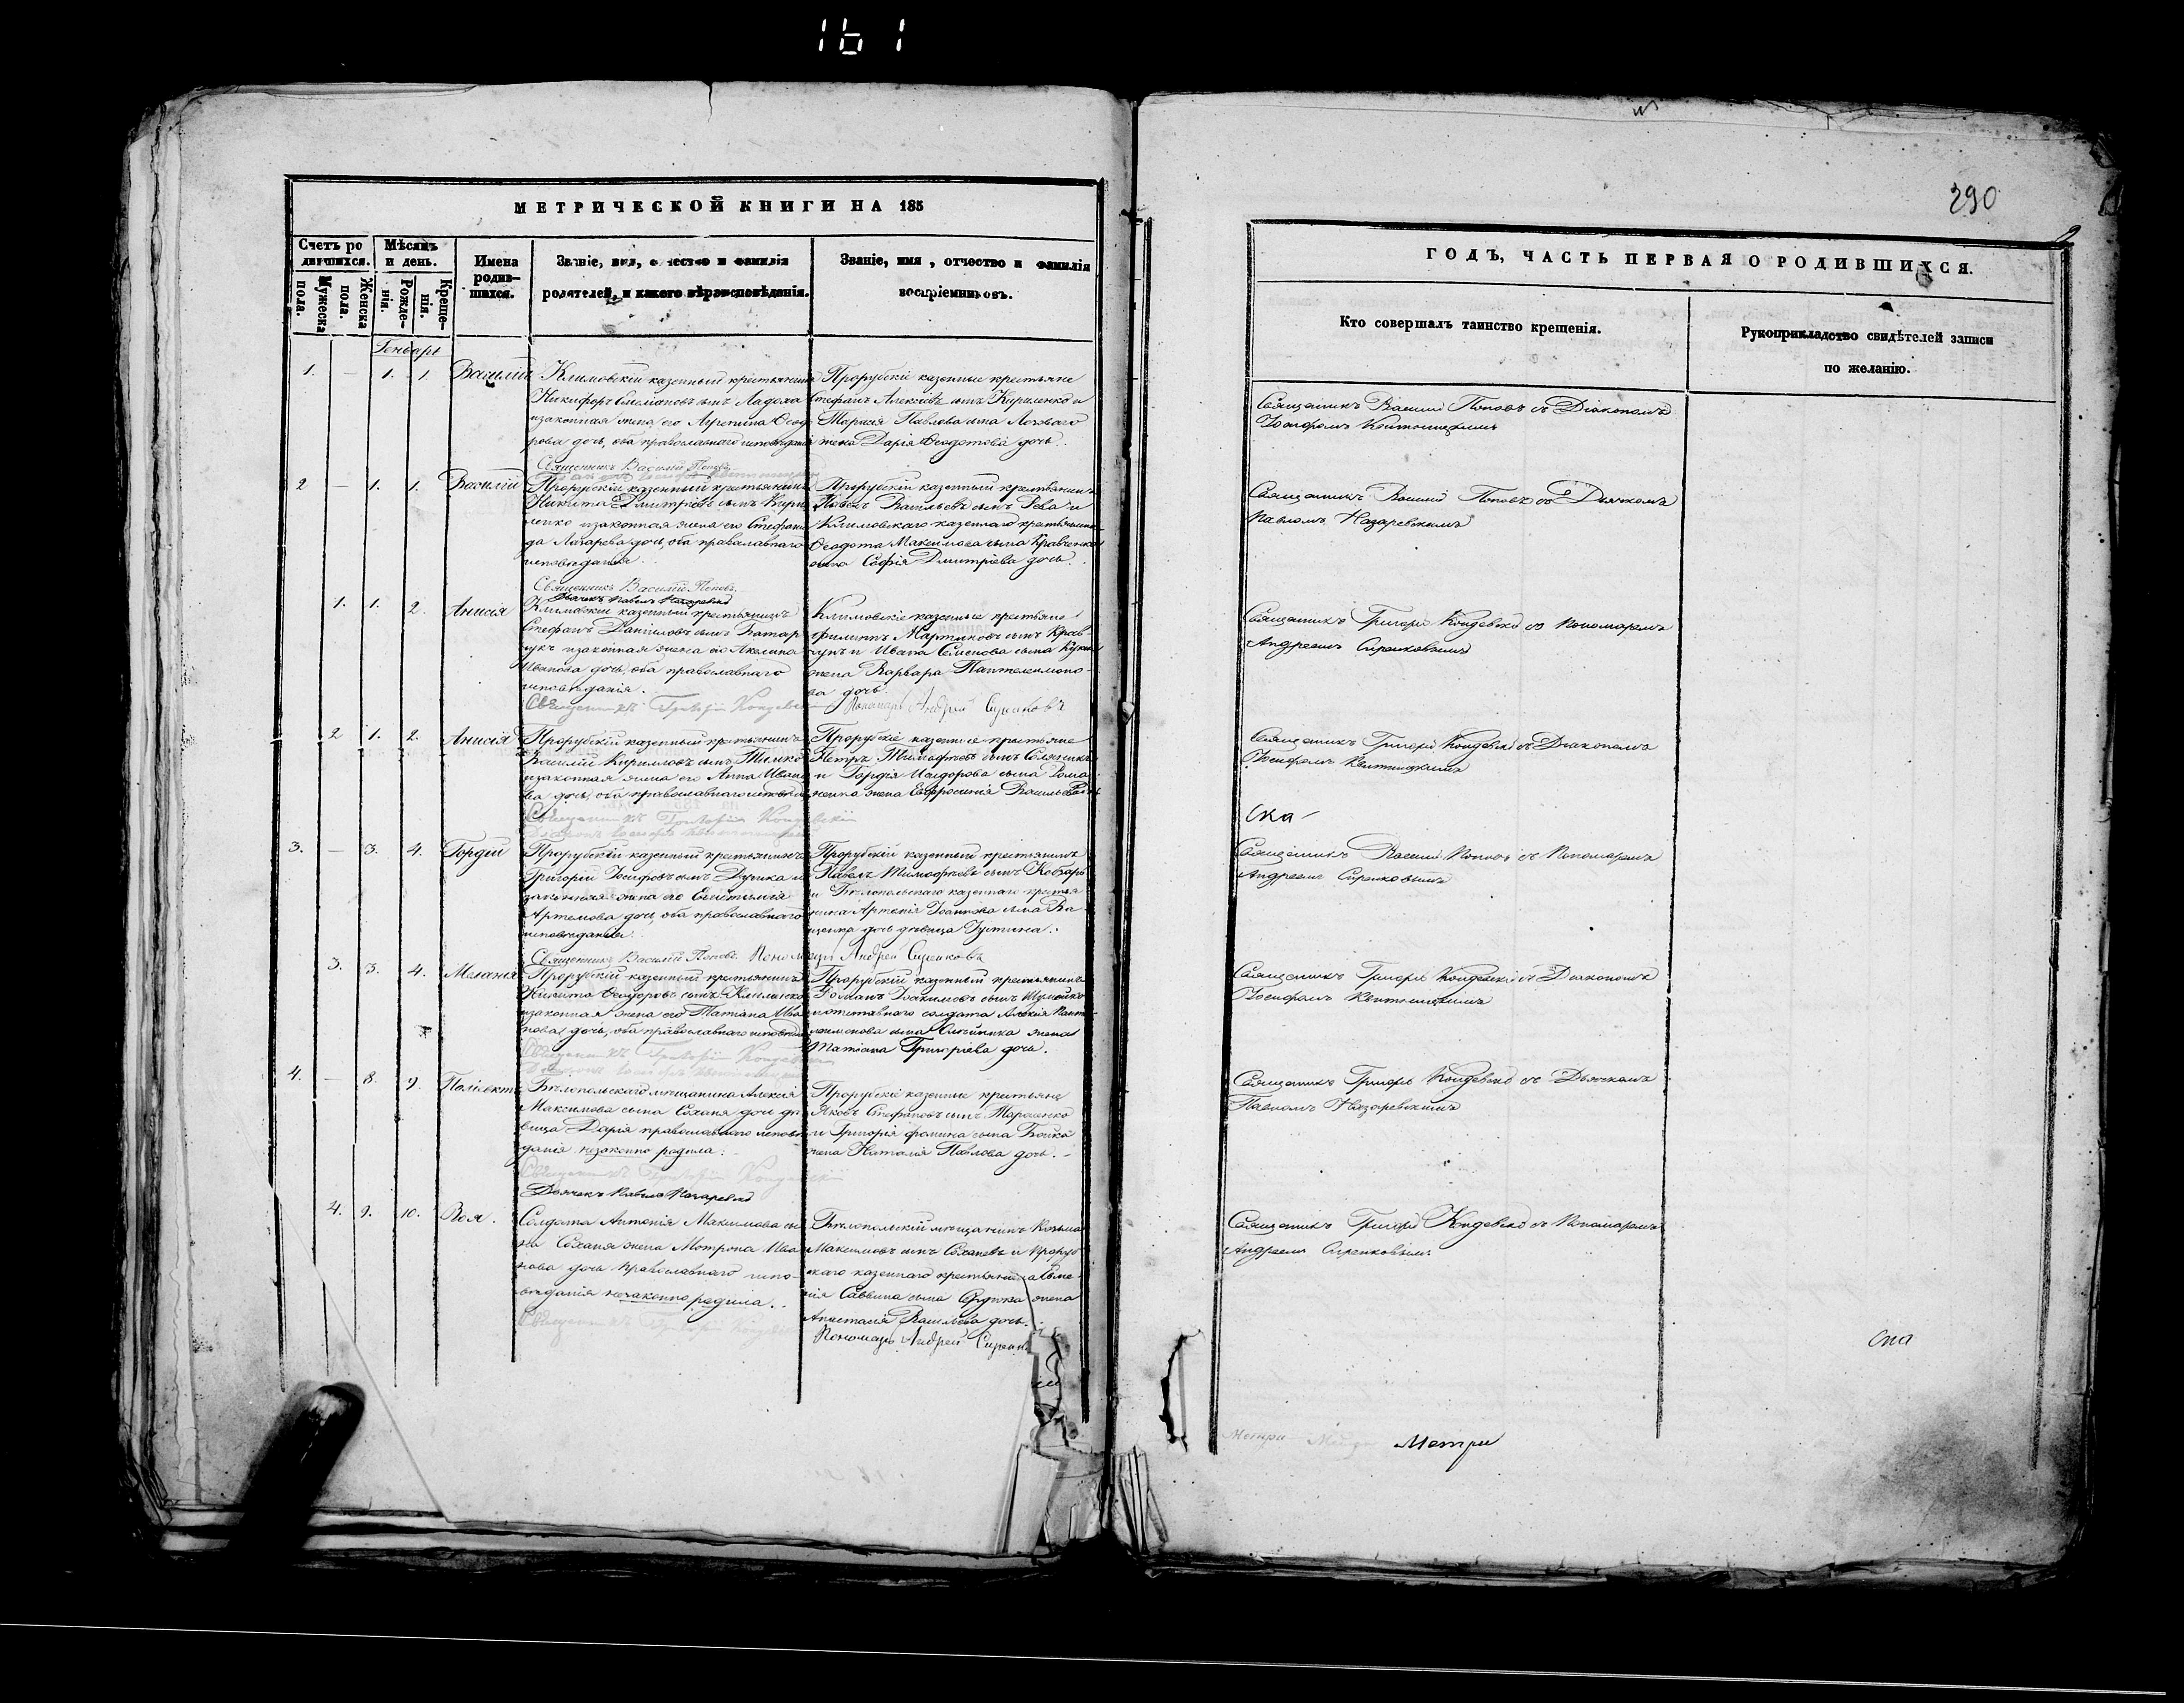 161
МЕТРИЧЕСКОЙ КНИГИ НА 185
Счетъ ро
дившихся.
Мѣсяцъ
и день.
Имена
родив-
шихся.
Званіе, имя, отчество и фамилія
родителей, и какого вѣроисповѣданія.
Званіе, имя, отчество и фамилія
воспріемниковъ.
Мужеска
пола.
Женска
пола.
Рожде-
нія.
Креще-
нія.
Генварь
1. — 1. 1. Василій
Климовскій казенный крестьянинъ
Никифоръ сынъ Ладоха
и законная жена его Агрепина Ѳеодо
рова дочь, оба православнаго исповѣданія
Священникъ Василій Поповъ
Прорубскіе казенные крестьяне
Стефанъ Алексіевъ сынъ Кириленко и
Павлова сына
жена Дарія Ѳеодотова дочь.
2 — 1. 1. Василій
Прорубскій казенный крестьянинъ
Никита Дмитріевъ сынъ Кири
ленко и законная жена его Стефани
да Лазарева дочь, оба православнаго
исповѣданія.
Священникъ Василій Поповъ.
Дьячекъ Павелъ Назаревскій
Прорубскій казенный крестьянинъ
Павелъ Васильевъ сынъ Рева и
Климовскаго казеннаго крестьянина
Ѳеодота Максимова сына Кравченка
жена Софія Дмитріева дочь.
1. 1. 2. Анисія
Климовскій казенный крестьянинъ
Стефанъ Даніиловъ сынъ Батар
чукъ и законная жена его Акелина
Иванова дочь, оба православнаго
исповѣданія.
Священникъ Григорій Кондевскій Пономарь Андрей Сиренковъ
Климовскіе казенные крестьяне
Филиппъ Мартиновъ сынъ Крав-
цунъ и Ивана Семенова сына
жена Варвара Пантелеимоно-
ва дочь.
2 1. 2. Анисія
Прорубскій казенный крестьянинъ
Василій Кирилловъ сынъ Тимко
и законная жена его Анна Ивано
ва дочь, оба православнаго исповѣд
Священникъ Григорій Кондевскій
Прорубскіе казенные крестьяне
Петръ Тимофѣевъ сынъ
и Гордія Исидорова сына Рома
ненка жена Евфросинія Васильева
3. — 3. 4. Гордій
Прорубскій казенный крестьянинъ
Григорій Іосифовъ сынъ и
законная жена его
Артемова дочь, оба православнаго
исповѣданія.
Священникъ Василій Поповъ. Пономарь Андрей Сиренковъ
Прорубскій казенный крестьянинъ
Павелъ Тимофѣевъ сынъ Кобзарь
и Бѣлопольскаго казеннаго крестья
нина Артемія Іоаннова сына Ва
щенка дочь дѣвица Іустина.
3. 3. 4. Меланія
Прорубскій казенный крестьянинъ
Никита Ѳеодоровъ сынъ
и законная жена его Татіана Ива
нова дочь, оба православнаго исповѣд
Священникъ Григорій Кондевскій
Прорубскій казенный крестьянинъ
Романъ Іоакимовъ сынъ
и отставнаго солдата Алексія Пант
леимонова сына Олейника жена
Татіана Григоріева дочь.
4. — 8. 9. Поліевктъ
Бѣлопольскаго мѣщанина Алексія
Максимова сына Соханя дочь дѣ
вица Дарія православнаго исповѣ
данія незаконно родила.
Священникъ Григорій Кондевскій
Дьячекъ Павелъ Назаревскій
Прорубскіе казенные крестьяне
Яковъ Стефановъ сынъ Тарасенко
и Григорія Фомина сына Бойка
жена Наталія Павлова дочь.
4. 9. 10. Зоя.
Солдата Антонія Максимова сы
на Соханя жена Мотрона Ива
нова дочь православнаго испо-
вѣданія незаконно родила.
Священникъ Григорій
Бѣлопольскій мѣщанинъ Козьма
Максимовъ сынъ Соханевъ и Проруб
скаго казеннаго крестьянина
Саввина сына Сердюка жена
Анастасія Васильева дочь.
Пономарь Андрей Сиренк
290
ГОДЪ, ЧАСТЬ ПЕРВАЯ О РОДИВШИХСЯ.
Кто совершалъ таинство крещенія.
Рукоприкладство свидѣтелей записи
по желанію.
Священникъ Василій Поповъ съ Діакономъ
Іосифомъ
Священникъ Василій Поповъ съ Дьячкомъ
Павломъ Назаревскимъ
Священникъ Григорій Кондевскій съ Пономаремъ
Андреемъ Сиренковымъ
Священникъ Григорій Кондевскій съ Діакономъ
Іосифомъ
Ска
Священникъ Василій Поповъ съ Пономаремъ
Андреемъ Сиренковымъ
Священникъ Григорій Кондевскій съ Діакономъ
Іосифомъ
Священникъ Григорій Кондевскій съ Дьячкомъ
Павломъ Назаревскимъ
Священникъ Григорій Кондевскій съ Пономаремъ
Андреемъ Сиренковымъ
Ска
Метри Метри